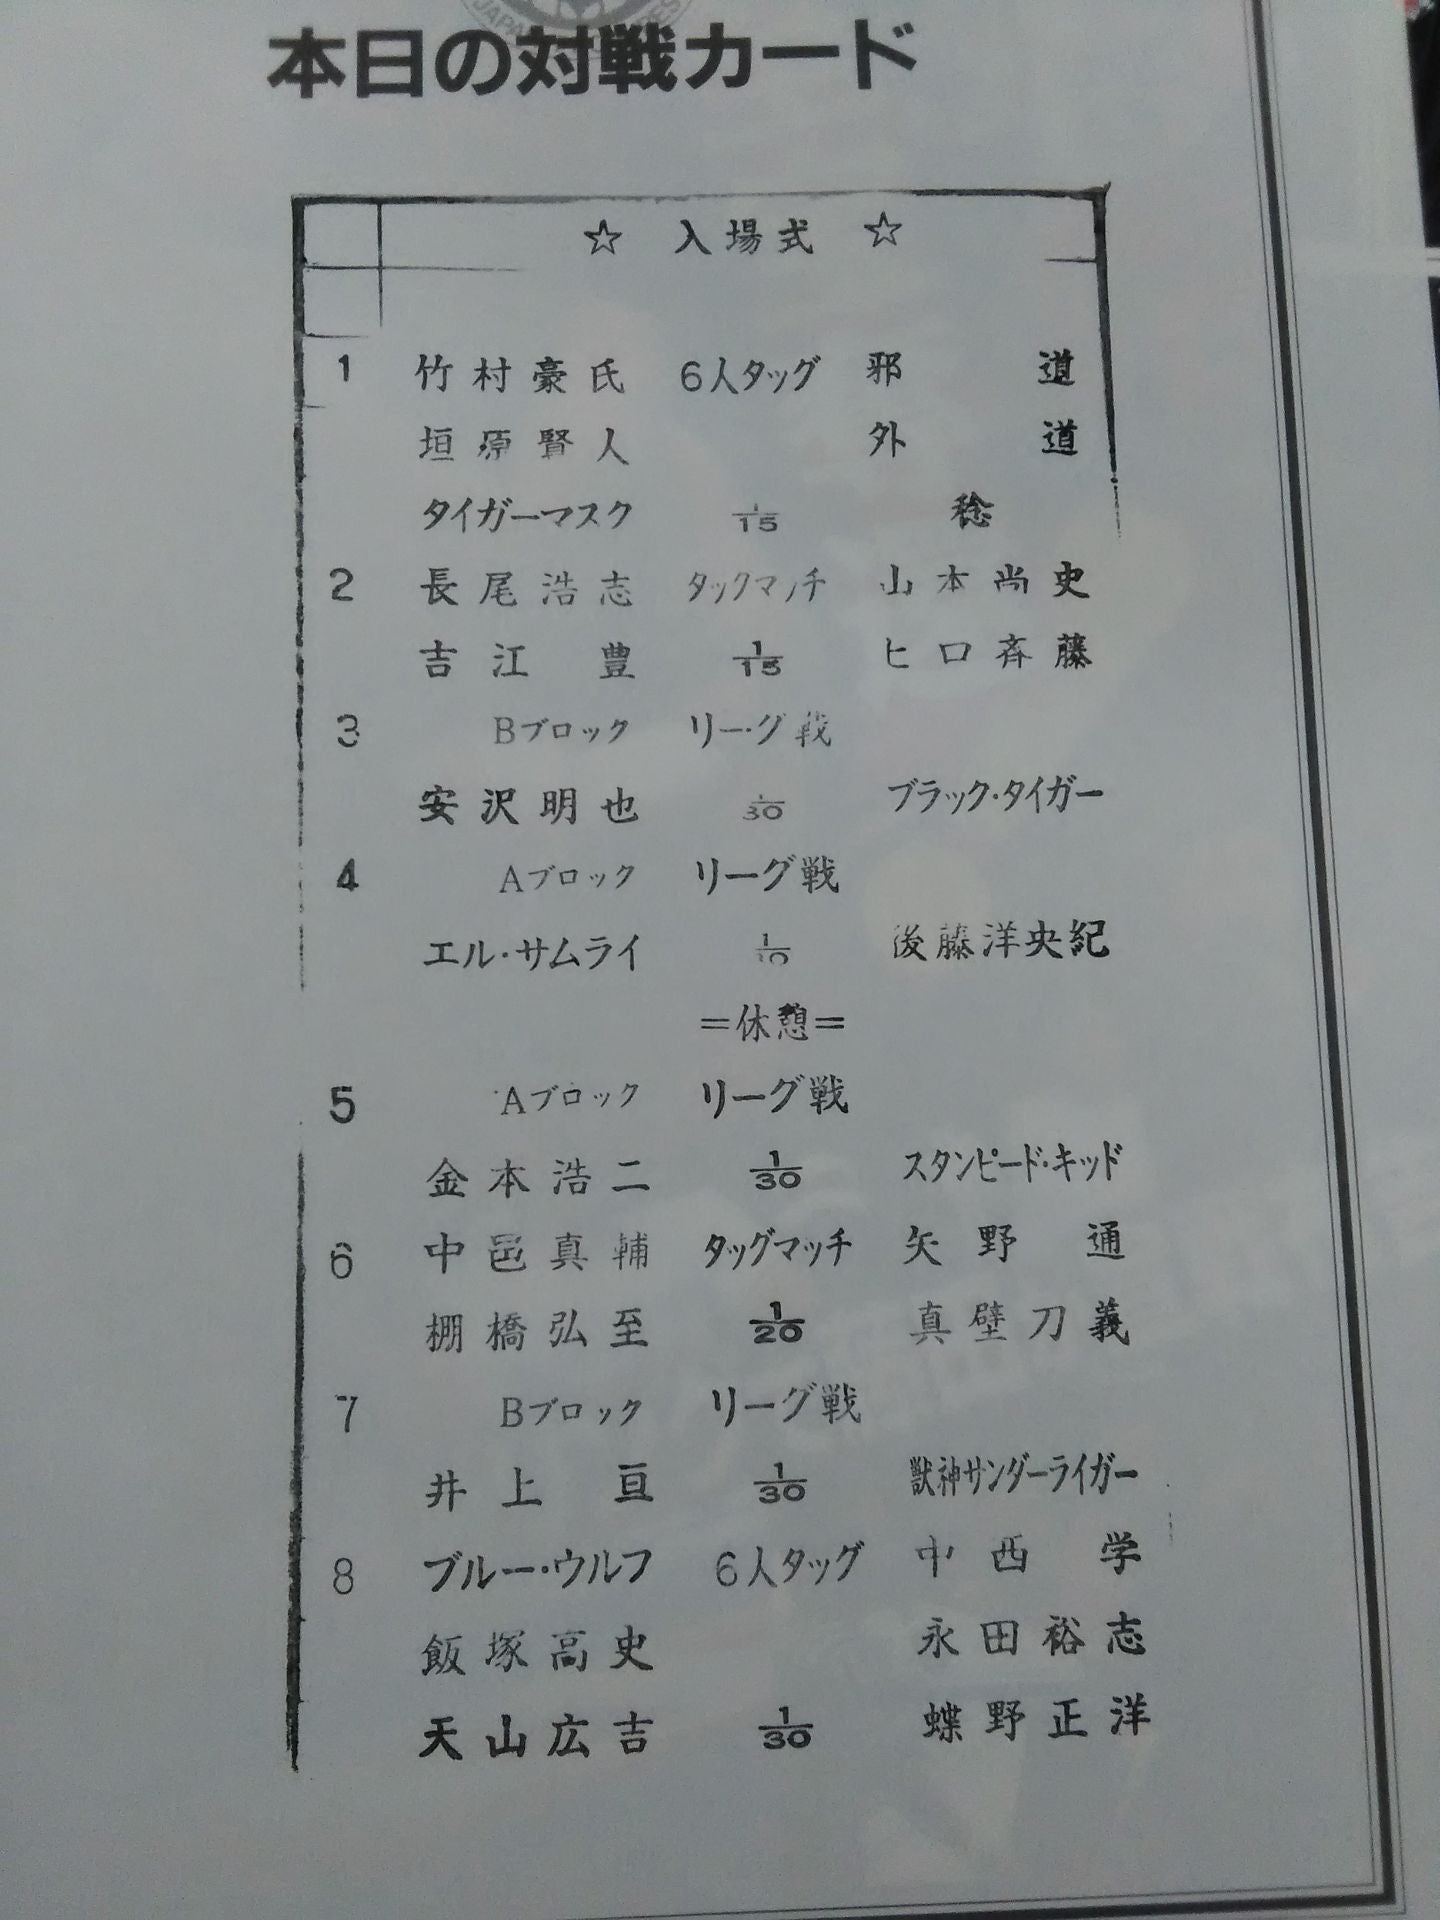 本日の対戦カード
☆ 入場式 ☆
1 竹村豪氏 6人タッグ 邪道
垣原賢人 外道
タイガーマスク 1/15 稔
2 長尾浩志 タッグマッチ 山本尚史
吉江豊 1/15 ヒロ斉藤
3 Bブロック リーグ戦
安沢明也 1/30 ブラック・タイガー
4 Aブロック リーグ戦
エル・サムライ 1/30 後藤洋央紀
=休憩=
5 Aブロック リーグ戦
金本浩二 1/30 スタンピード・キッド
6 中邑真輔 タッグマッチ 矢野通
棚橋弘至 1/20 真壁刀義
7 Bブロック リーグ戦
井上亘 1/30 獣神サンダーライガー
8 ブルー・ウルフ 6人タッグ 中西学
飯塚高史 永田裕志
天山広吉 1/30 蝶野正洋